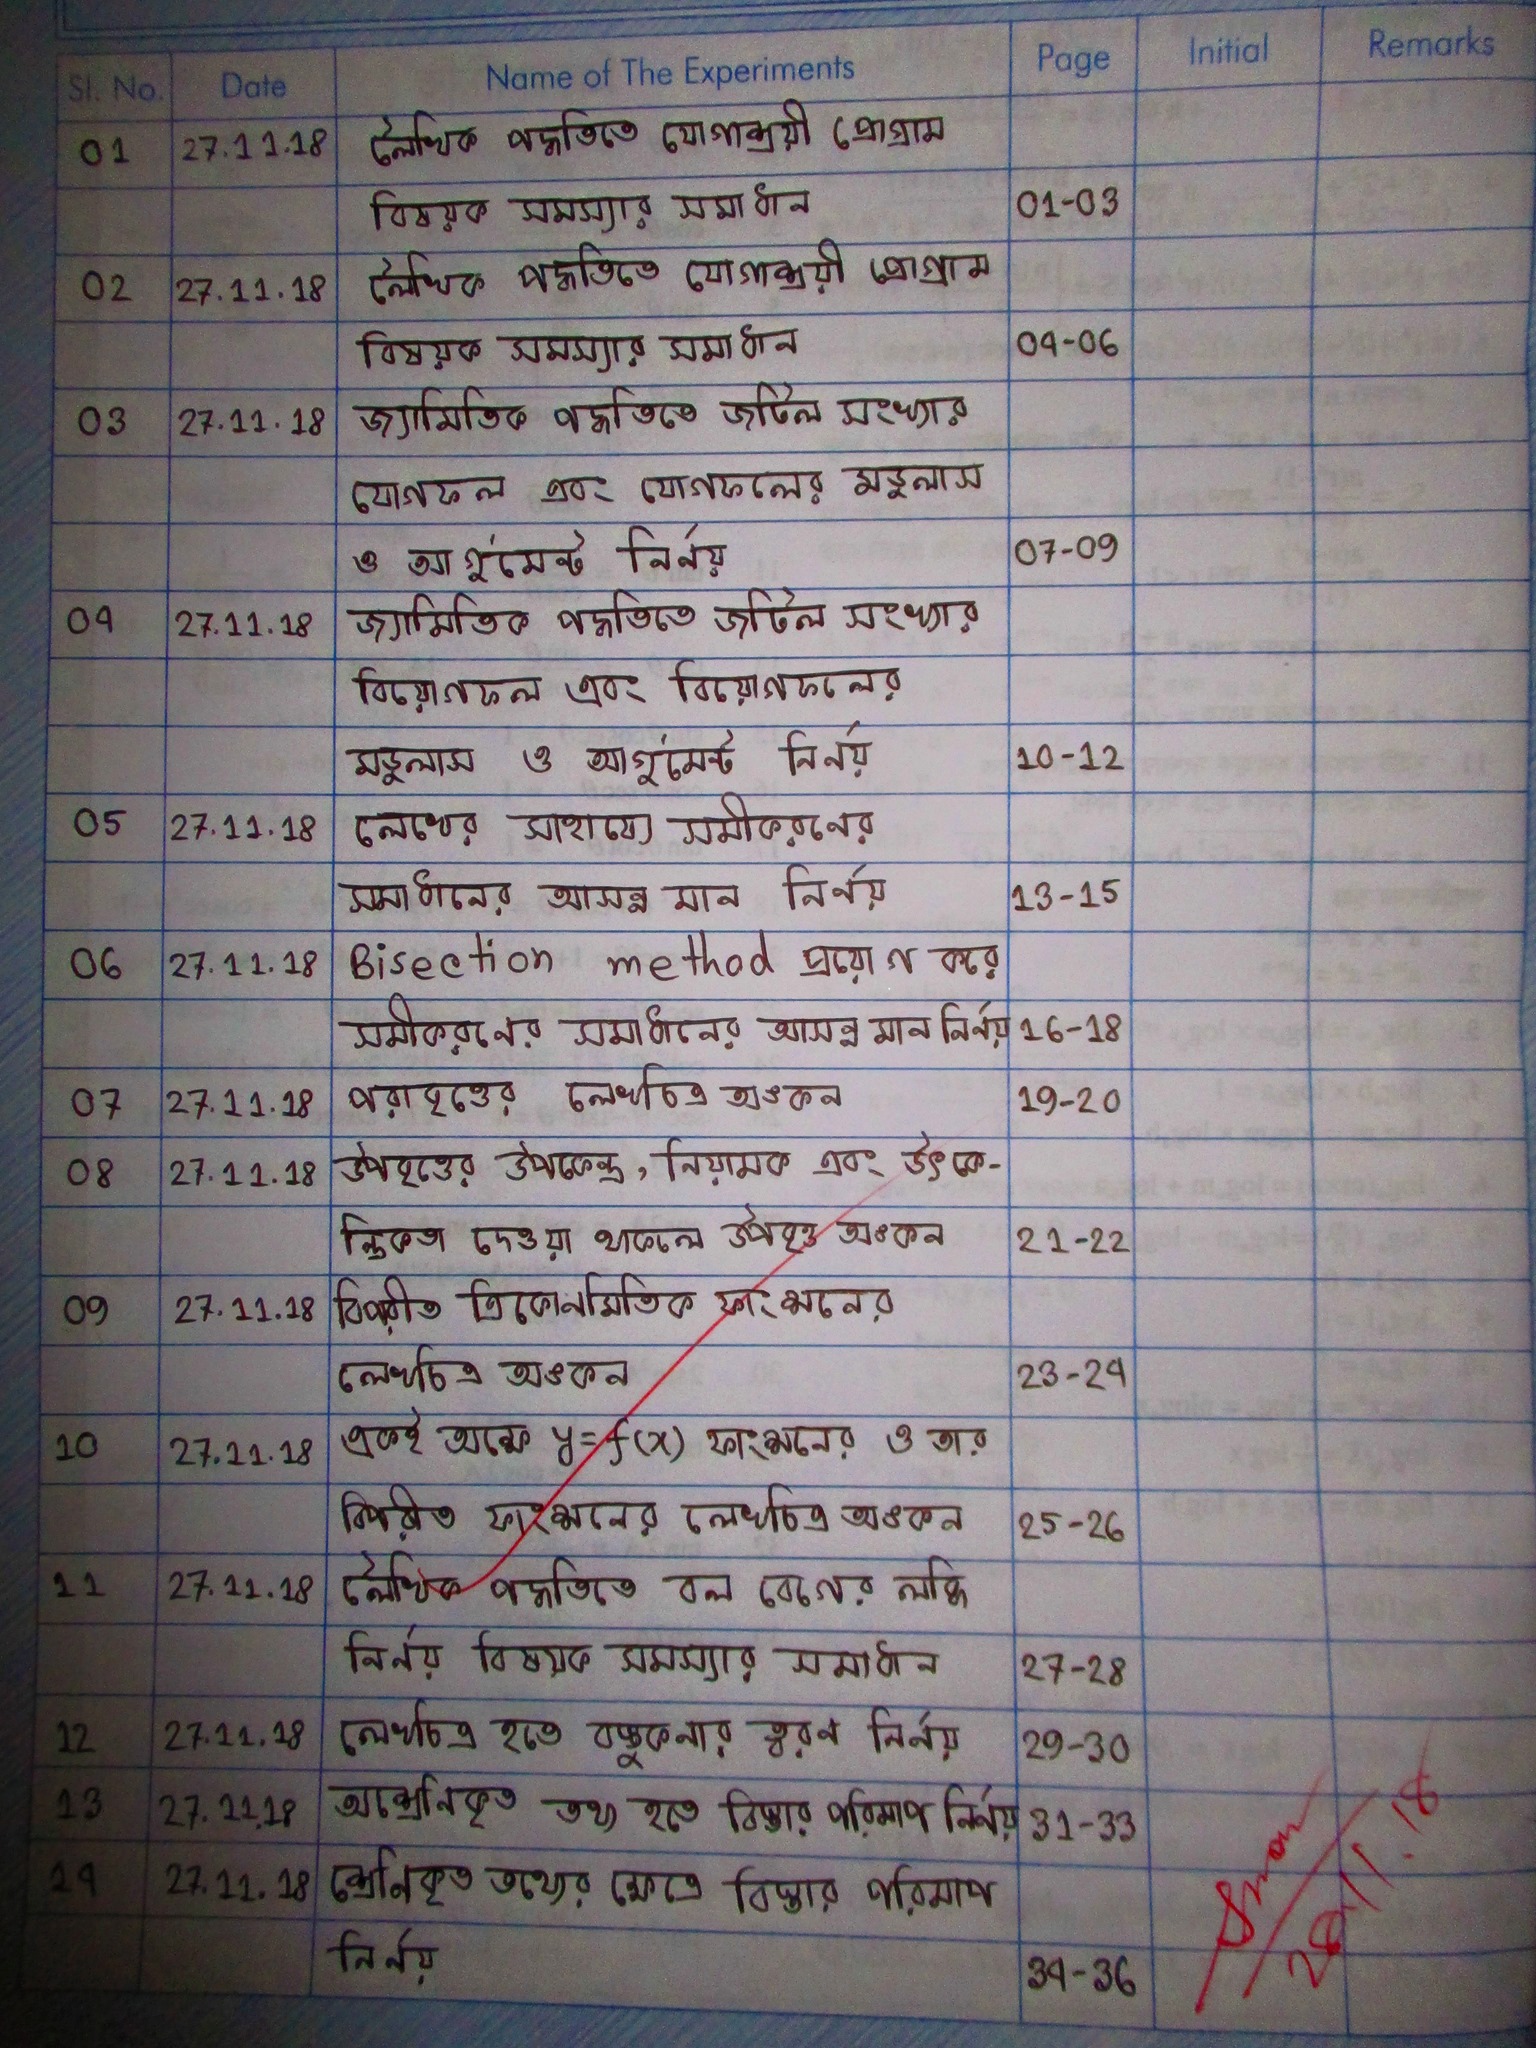 Sl. No. Date Name of The Experiments Page Initial Remarks
01 27.11.18 লৈখিক পদ্ধতিতে যোগাশ্রয়ী প্রোগ্রাম
বিষয়ক সমস্যার সমাধান 01-03
02 27.11.18 লৈখিক পদ্ধতিতে যোগাশ্রয়ী প্রোগ্রাম
বিষয়ক সমস্যার সমাধান 04-06
03 27.11.18 জ্যামিতিক পদ্ধতিতে জটিল সংখ্যার
যোগফল এবং যোগফলের মডুলাস
ও আর্গুমেন্ট নির্নয় 07-09
04 27.11.18 জ্যামিতিক পদ্ধতিতে জটিল সংখ্যার
বিয়োগফল এবং বিয়োগফলের
মডুলাস ও আর্গুমেন্ট নির্নয় 10-12
05 27.11.18 লেখের সাহায্যে সমীকরনের
সমাধানের আসন্ন মান নির্নয় 13-15
06 27.11.18 Bisection method প্রয়োগ করে
সমীকরনের সমাধানের আসন্ন মান নির্নয় 16-18
07 27.11.18 পরাবৃত্তের লেখচিত্র অঙকন 19-20
08 27.11.18 উপবৃত্তের উপকেন্দ্র, নিয়ামক এবং উৎকে-
ন্দ্রিকতা দেওয়া থাকলে উপবৃত্ত অঙকন 21-22
09 27.11.18 বিপরীত ত্রিকোনমিতিক ফাংশনের
লেখচিত্র অঙকন 23-24
10 27.11.18 একই অক্ষে y=f(x) ফাংশনের ও তার
বিপরীত ফাংশনের লেখচিত্র অঙকন 25-26
11 27.11.18 লৈখিক পদ্ধতিতে বল বেগের লব্ধি
নির্নয় বিষয়ক সমস্যার সমাধান 27-28
12 27.11.18 লেখচিত্র হতে বস্তুকনার ত্বরন নির্নয় 29-30
13 27.11.18 অশ্রেনিকৃত তথ্য হতে বিস্তার পরিমাপ নির্নয় 31-33
14 27.11.18 শ্রেনিকৃত তথ্যের ক্ষেত্রে বিস্তার পরিমাপ
নির্নয় 34-36
28.11.18